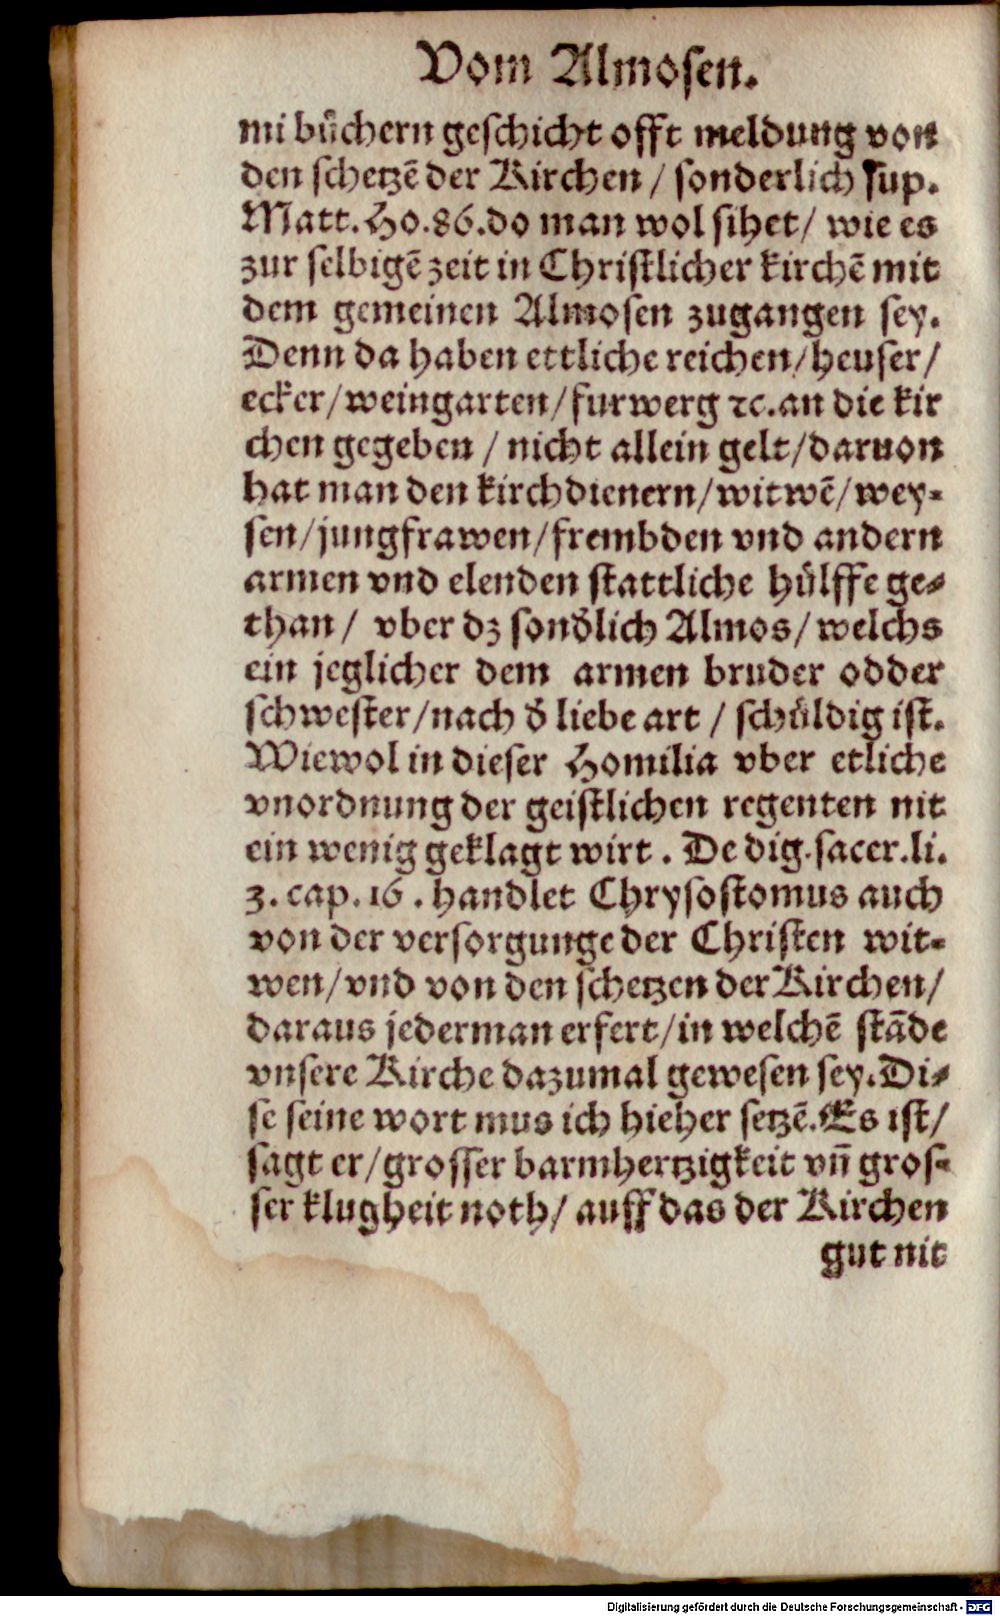 Vom Almosen.
mi bůchern geschicht offt meldung von
den schetzẽ der Kirchen / sonderlich sup.
Matt. Ho. 86. do man wol sihet / wie es
zur selbigẽ zeit in Christlicher kirchẽ mit
dem gemeinen Almosen zugangen sey.
Denn da haben ettliche reichen / heuser /
ecker / weingarten / furwerg ꝛc. an die kir
chen gegeben / nicht allein gelt / daruon
hat man den kirchdienern / witwẽ / wey-
sen / jungfrawen / frembden vnd andern
armen vnd elenden stattliche hůlffe ge-
than / vber dz sonđlich Almos / welchs
ein jeglicher dem armen bruder odder
schwester / nach đ liebe art / schůldig ist.
Wiewol in dieser Homilia vber etliche
vnordnung der geistlichen regenten nit
ein wenig geklagt wirt. De dig. sacer. li.
3. cap. 16. handlet Chrysostomus auch
von der versorgunge der Christen wit-
wen / vnd von den schetzen der Kirchen /
daraus jederman erfert / in welchẽ stãde
vnsere Kirche dazumal gewesen sey. Di-
se seine wort mus ich hieher setzẽ. Es ist /
sagt er / grosser barmhertzigkeit vñ gros-
ser klugheit noth / auff das der Kirchen
gut nit
Digitalisierung gefördert durch die Deutsche Forschungsgemeinschaft - DFG